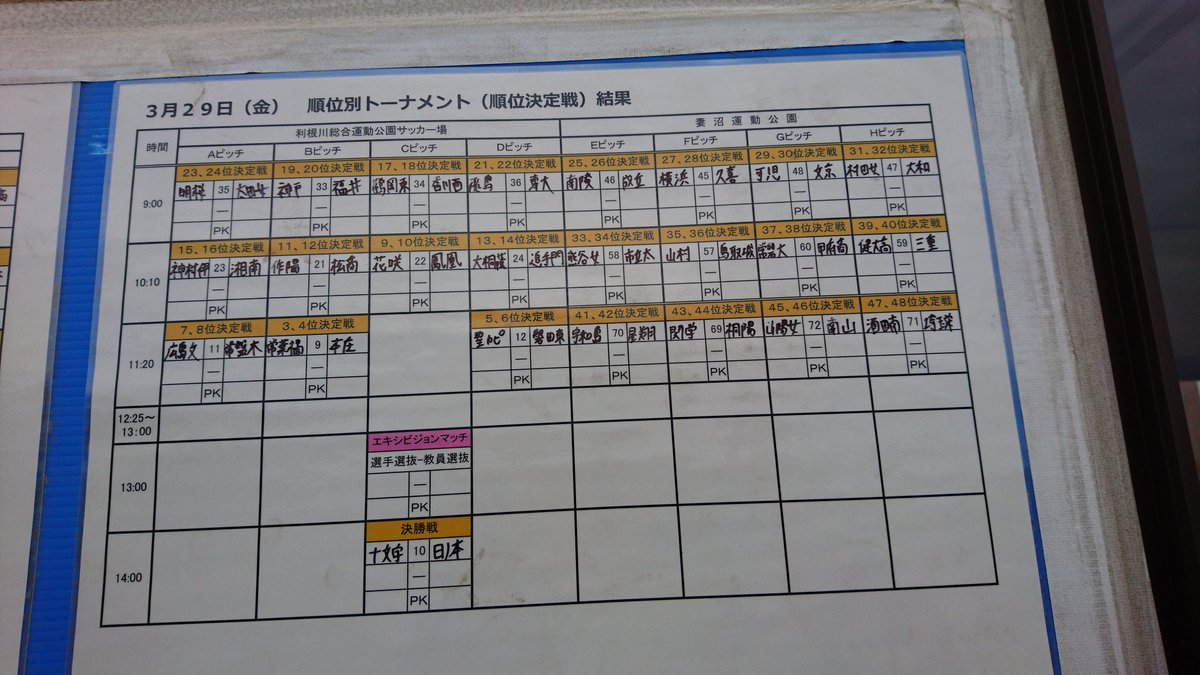 3月29日（金）　順位別トーナメント（順位決定戦）結果
時間 利根川総合運動公園サッカー場 妻沼運動公園
Aピッチ Bピッチ Cピッチ Dピッチ Eピッチ Fピッチ Gピッチ Hピッチ
23、24位決定戦 19、20位決定戦 17、18位決定戦 21、22位決定戦 25、26位決定戦 27、28位決定戦 29、30位決定戦 31、32位決定戦
9:00 明桜 35 大田女 神戸 33 福井 鶴岡東 34 36 専大 南陵 46 成立 横浜 45 久喜 可児 48 文京 村田女 47 大和
― ― ― ― ― ― ― ―
PK PK PK PK PK PK PK PK
15、16位決定戦 11、12位決定戦 9、10位決定戦 13、14位決定戦 33、34位決定戦 35、36位決定戦 37、38位決定戦 39、40位決定戦
10:10 神村伊 23 湘南 作陽 21 松商 花咲 22 鳳凰 大桐蔭 24 追手門 熊谷女 58 市立太 山村 57 鳥取城 常磐大 60 甲府商 健大高 59 三重
― ― ― ― ― ― ― ―
PK PK PK PK PK PK PK PK
7、8位決定戦 3、4位決定戦 5、6位決定戦 41、42位決定戦 43、44位決定戦 45、46位決定戦 47、48位決定戦
11:20 広島文 11 常盤木 常葉橘 9 本庄 12 磐田東 宇和島 70 星翔 関学 69 桐陽 山陽女 72 南山 酒田南 71 埼玉栄
― ― ― ― ― ― ―
PK PK PK PK PK PK PK
12:25～
13:00
エキシビジョンマッチ
13:00 選手選抜-教員選抜
―
PK
決勝戦
14:00 十文字 10 日ノ本
―
PK